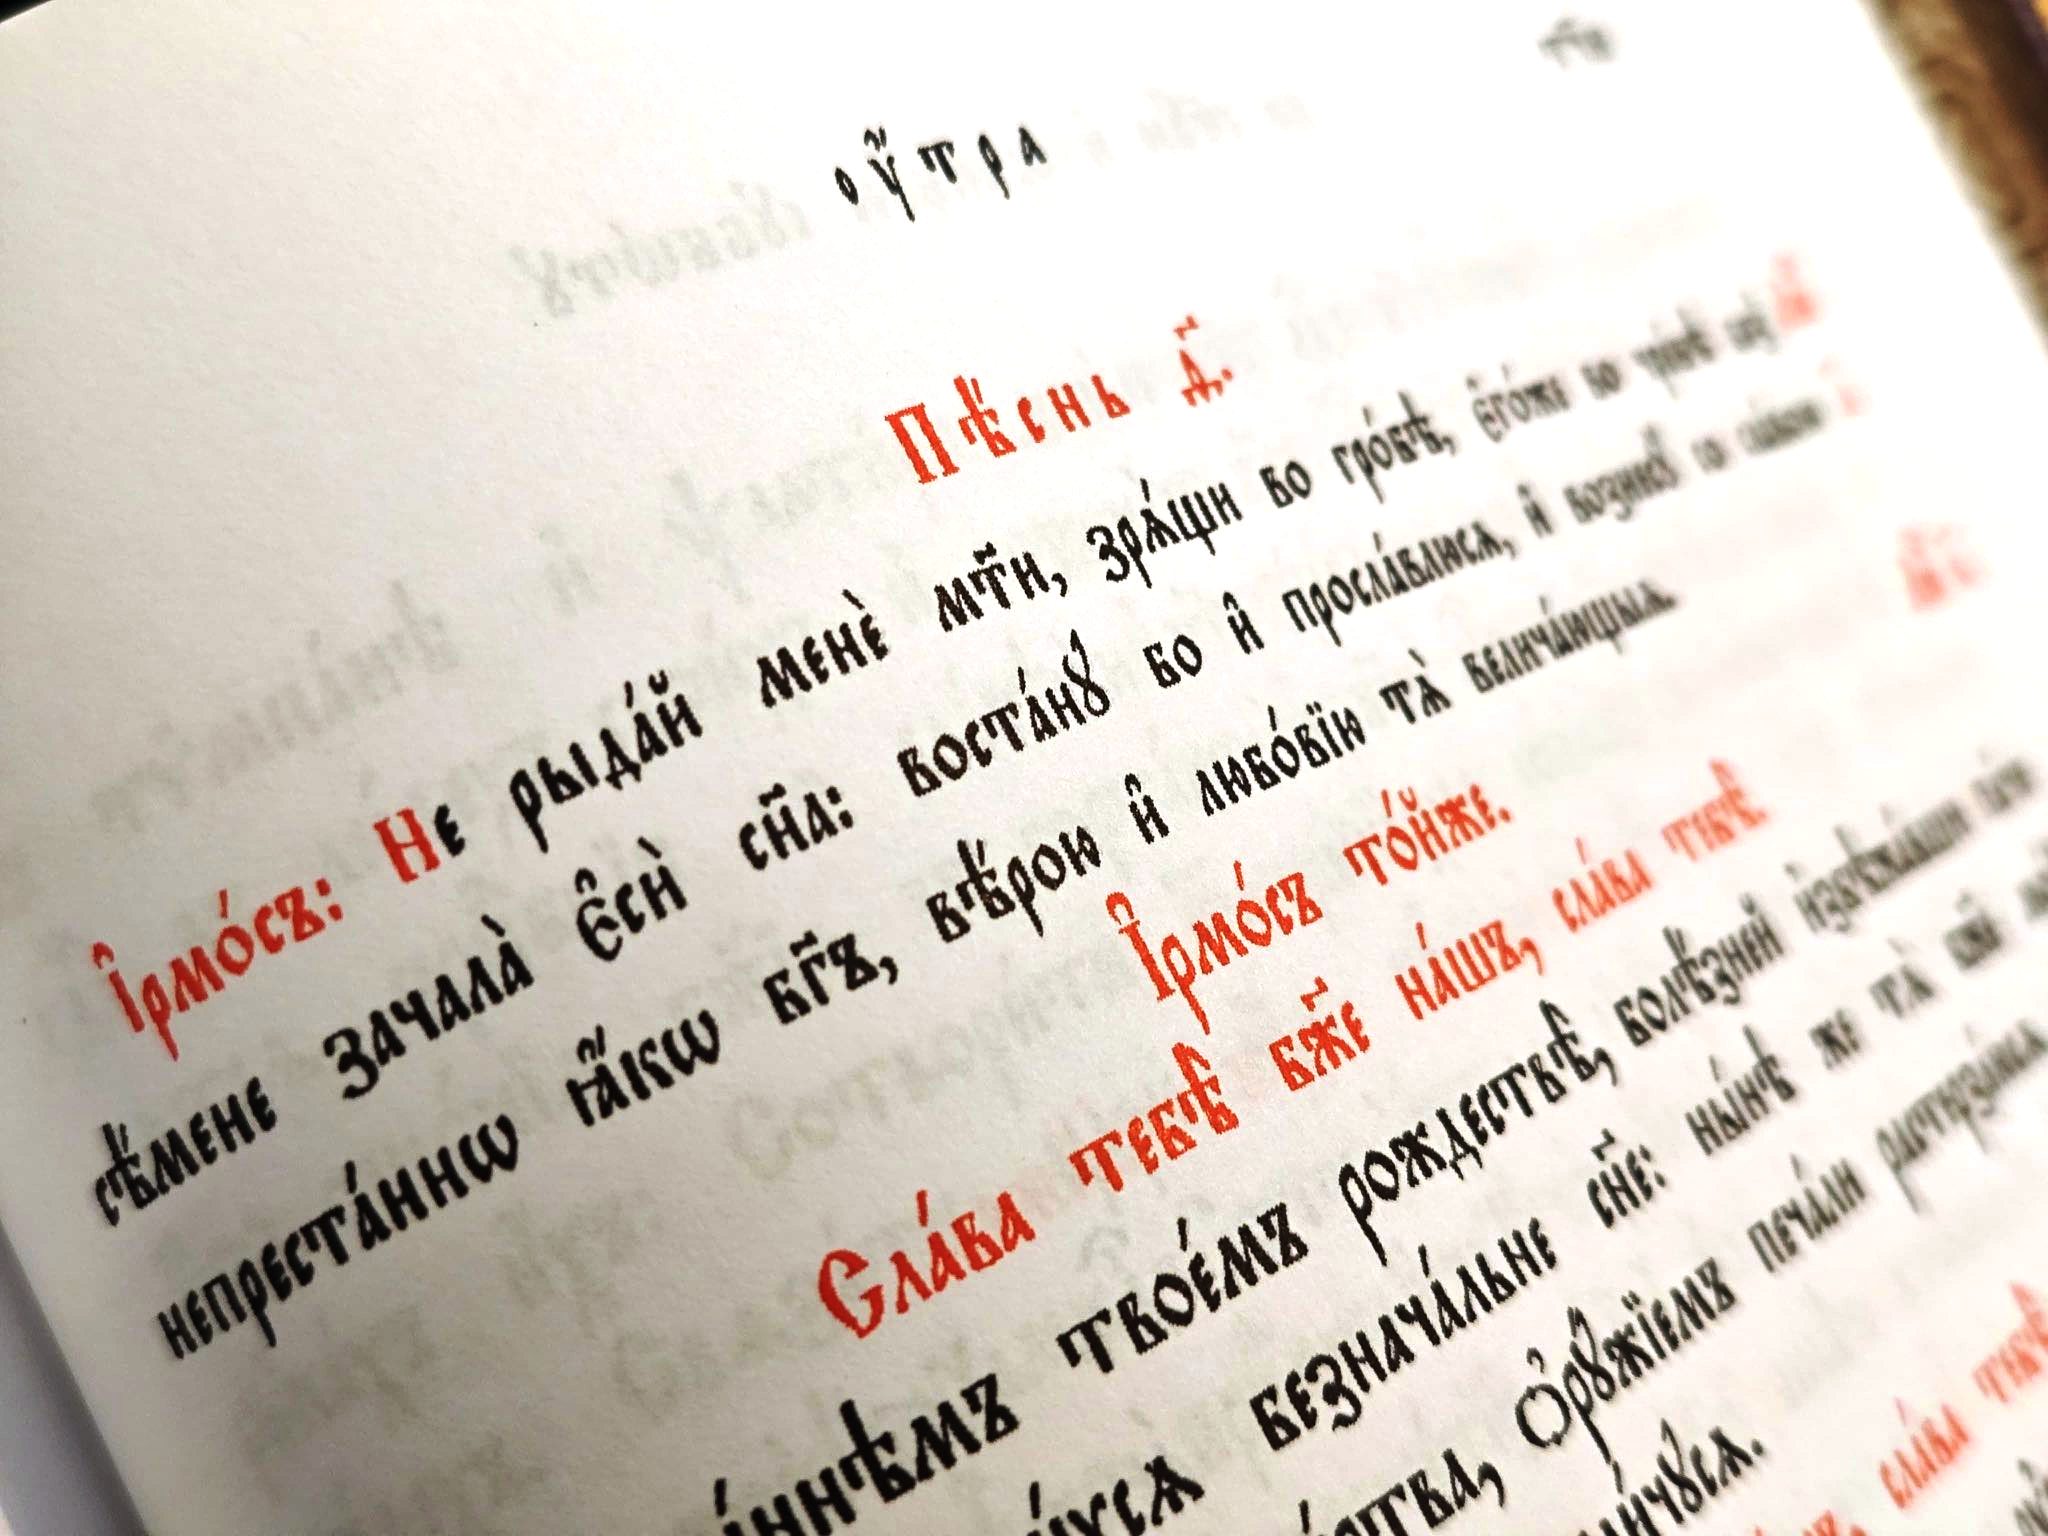 ᲂу҆́тра
Пѣ́снь д҃.
І҆рмо́съ: Не рыда́й менє̀ мт҃и, зрѧ́щи во гро́бѣ, є҆го́же во чре́вѣ
сѣ́мене зачала̀ є҆сѝ сн҃а: воста́нꙋ бо и҆ просла́влюсѧ, и҆ вознесꙋ̀ со сла́вою
непреста́ннѡ ꙗ҆́кѡ бг҃ъ, вѣ́рою и҆ любо́вїю тѧ̀ велича́ющыѧ.
І҆рмо́съ то́йже.
Сла́ва тебѣ̀ бж҃е на́шъ, сла́ва тебѣ̀.
твое́мъ рождествѣ̀, болѣ́зней и҆збѣжа́вши
безнача́льне сн҃е: ны́нѣ же тѧ̀
ѻ҆рꙋ́жїемъ печа́ли растерза́юсѧ
сла́ва тебѣ̀